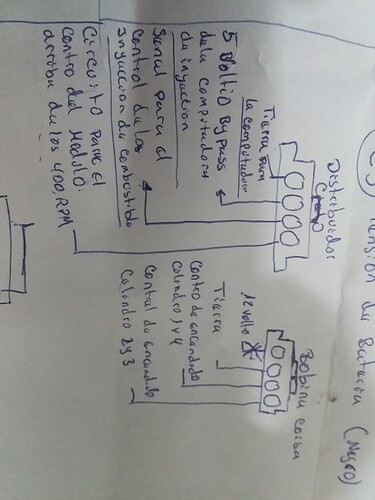 Tension da Bateria (Negro)
Distribuidor
Tierra para
la computadora
5 Voltio Bypass
dela Computadora
da inyaction
Senal para el
Control de los
Inyaccion da combustible
Circuito para el
control del Modulo.
arriba da los 400, RPM
Bobina Corsa
12 Volto
Tierra
Contro da encendido
Calindro 1 y 4
Control da encendido
Calondro 2 y 3